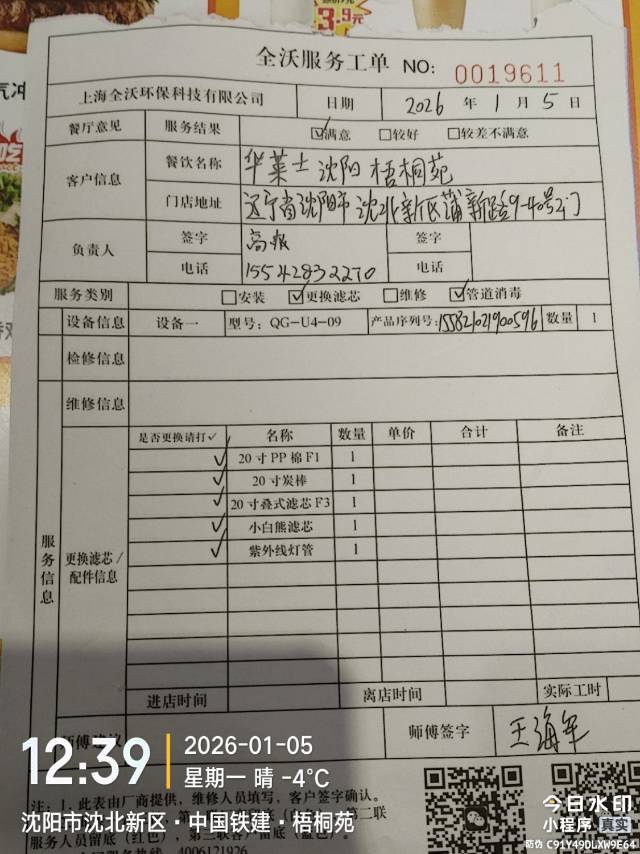 3.9元
气冲
全沃服务工单 NO: 0019611
上海全沃环保科技有限公司 日期 2026 年 1 月 5 日
餐厅意见 服务结果 ☑满意 □较好 □较差不满意
客户信息 餐饮名称 华莱士沈阳梧桐苑
门店地址 辽宁省沈阳市沈北新区蒲新路9-40号2门
负责人 签字 签字
电话 15542832270 电话
服务类别 □安装 ☑更换滤芯 □维修 ☑管道消毒
设备信息 设备一 型号: QG-U4-09 产品序列号: 155821021900596 数量 1
检修信息
维修信息
服务信息
更换滤芯/配件信息
是否更换请打✓ 名称 数量 单价 合计 备注
✓ 20寸PP棉F1 1
✓ 20寸炭棒 1
✓ 20寸叠式滤芯F3 1
✓ 小白熊滤芯 1
✓ 紫外线灯管 1
进店时间 离店时间 实际工时
师傅建议 师傅签字 王海军
12:39 2026-01-05
星期一 晴 -4℃
注: 1. 此表由厂商提供, 维修人员填写, 客户签字确认。
沈阳市沈北新区·中国铁建·梧桐苑
第二联
服务人员留底(红色)
4006121926
今日水印
小程序 真实
防伪 C91Y49DLXW9E64